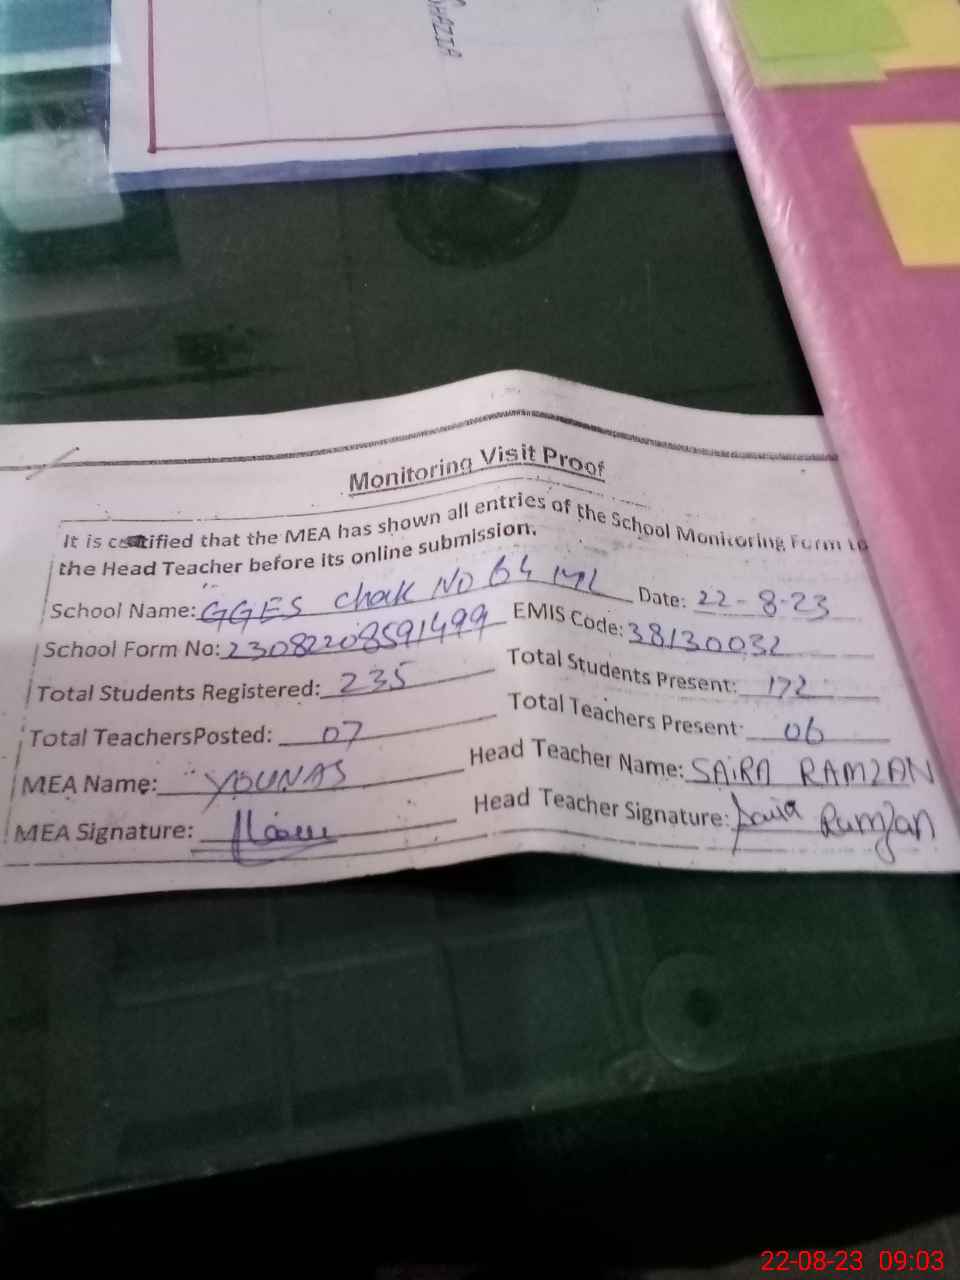 SHAZIA
Monitoring Visit Proof
It is certified that the MEA has shown all entries of the School Monitoring Form to
the Head Teacher before its online submission.
School Name: GGES Chak No 64 ML Date: 22-8-23
School Form No: 23082208591499 EMIS Code: 38130032
Total Students Registered: 235 Total Students Present: 172
Total TeachersPosted: 07 Total Teachers Present: 06
MEA Name: YOUNAS Head Teacher Name: SAIRA RAMZAN
MEA Signature: Head Teacher Signature: Saira Ramzan
22-08-23 09:03